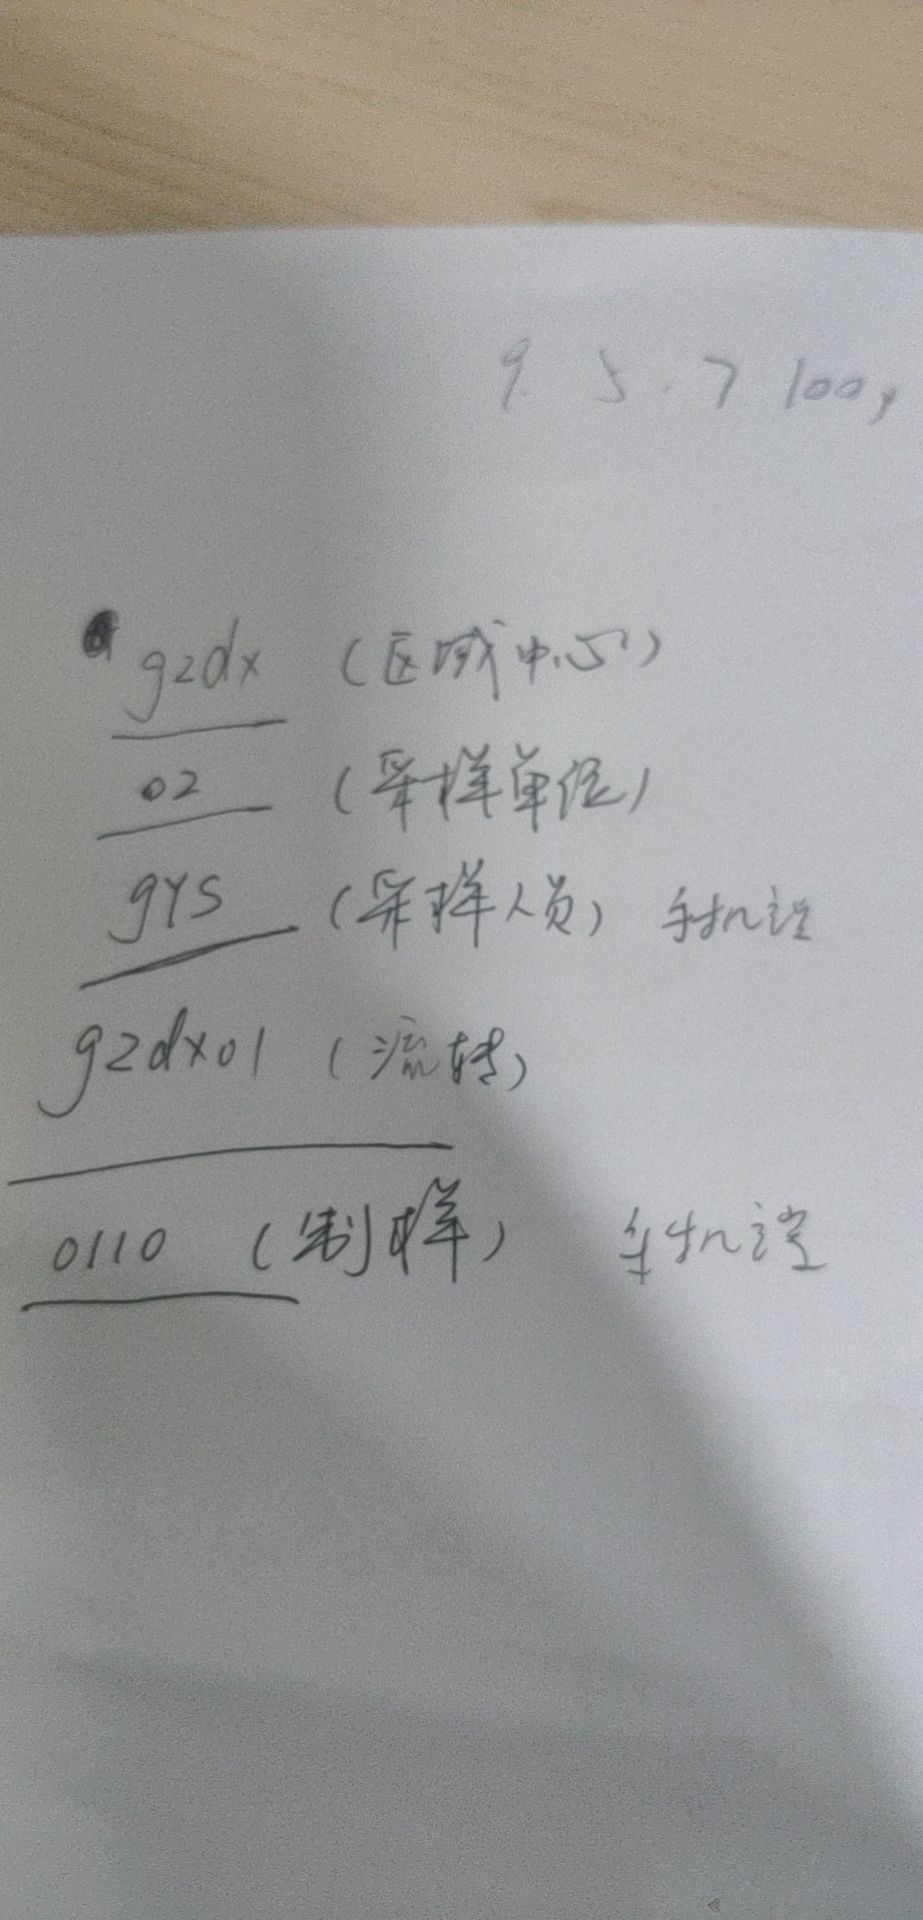 9. 5. 7 100g
gzdx (区域中心)
02 (采样单位)
gys (采样人员) 手机端
gzdx01 (流转)
0110 (制样) 手机端